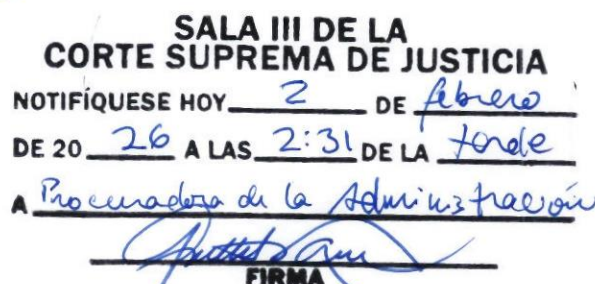 SALA III DE LA
CORTE SUPREMA DE JUSTICIA
NOTIFÍQUESE HOY 2 DE febrero
DE 20 26 A LAS 2:31 DE LA tarde
A Procuradora de la Administración
FIRMA